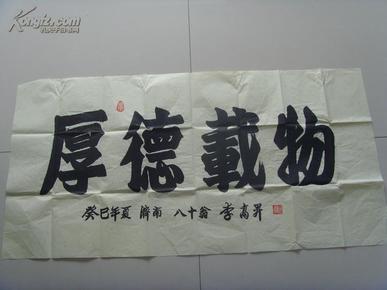 Kongfz.com
厚德載物
癸巳年夏 濟南 八十翁 李高昇